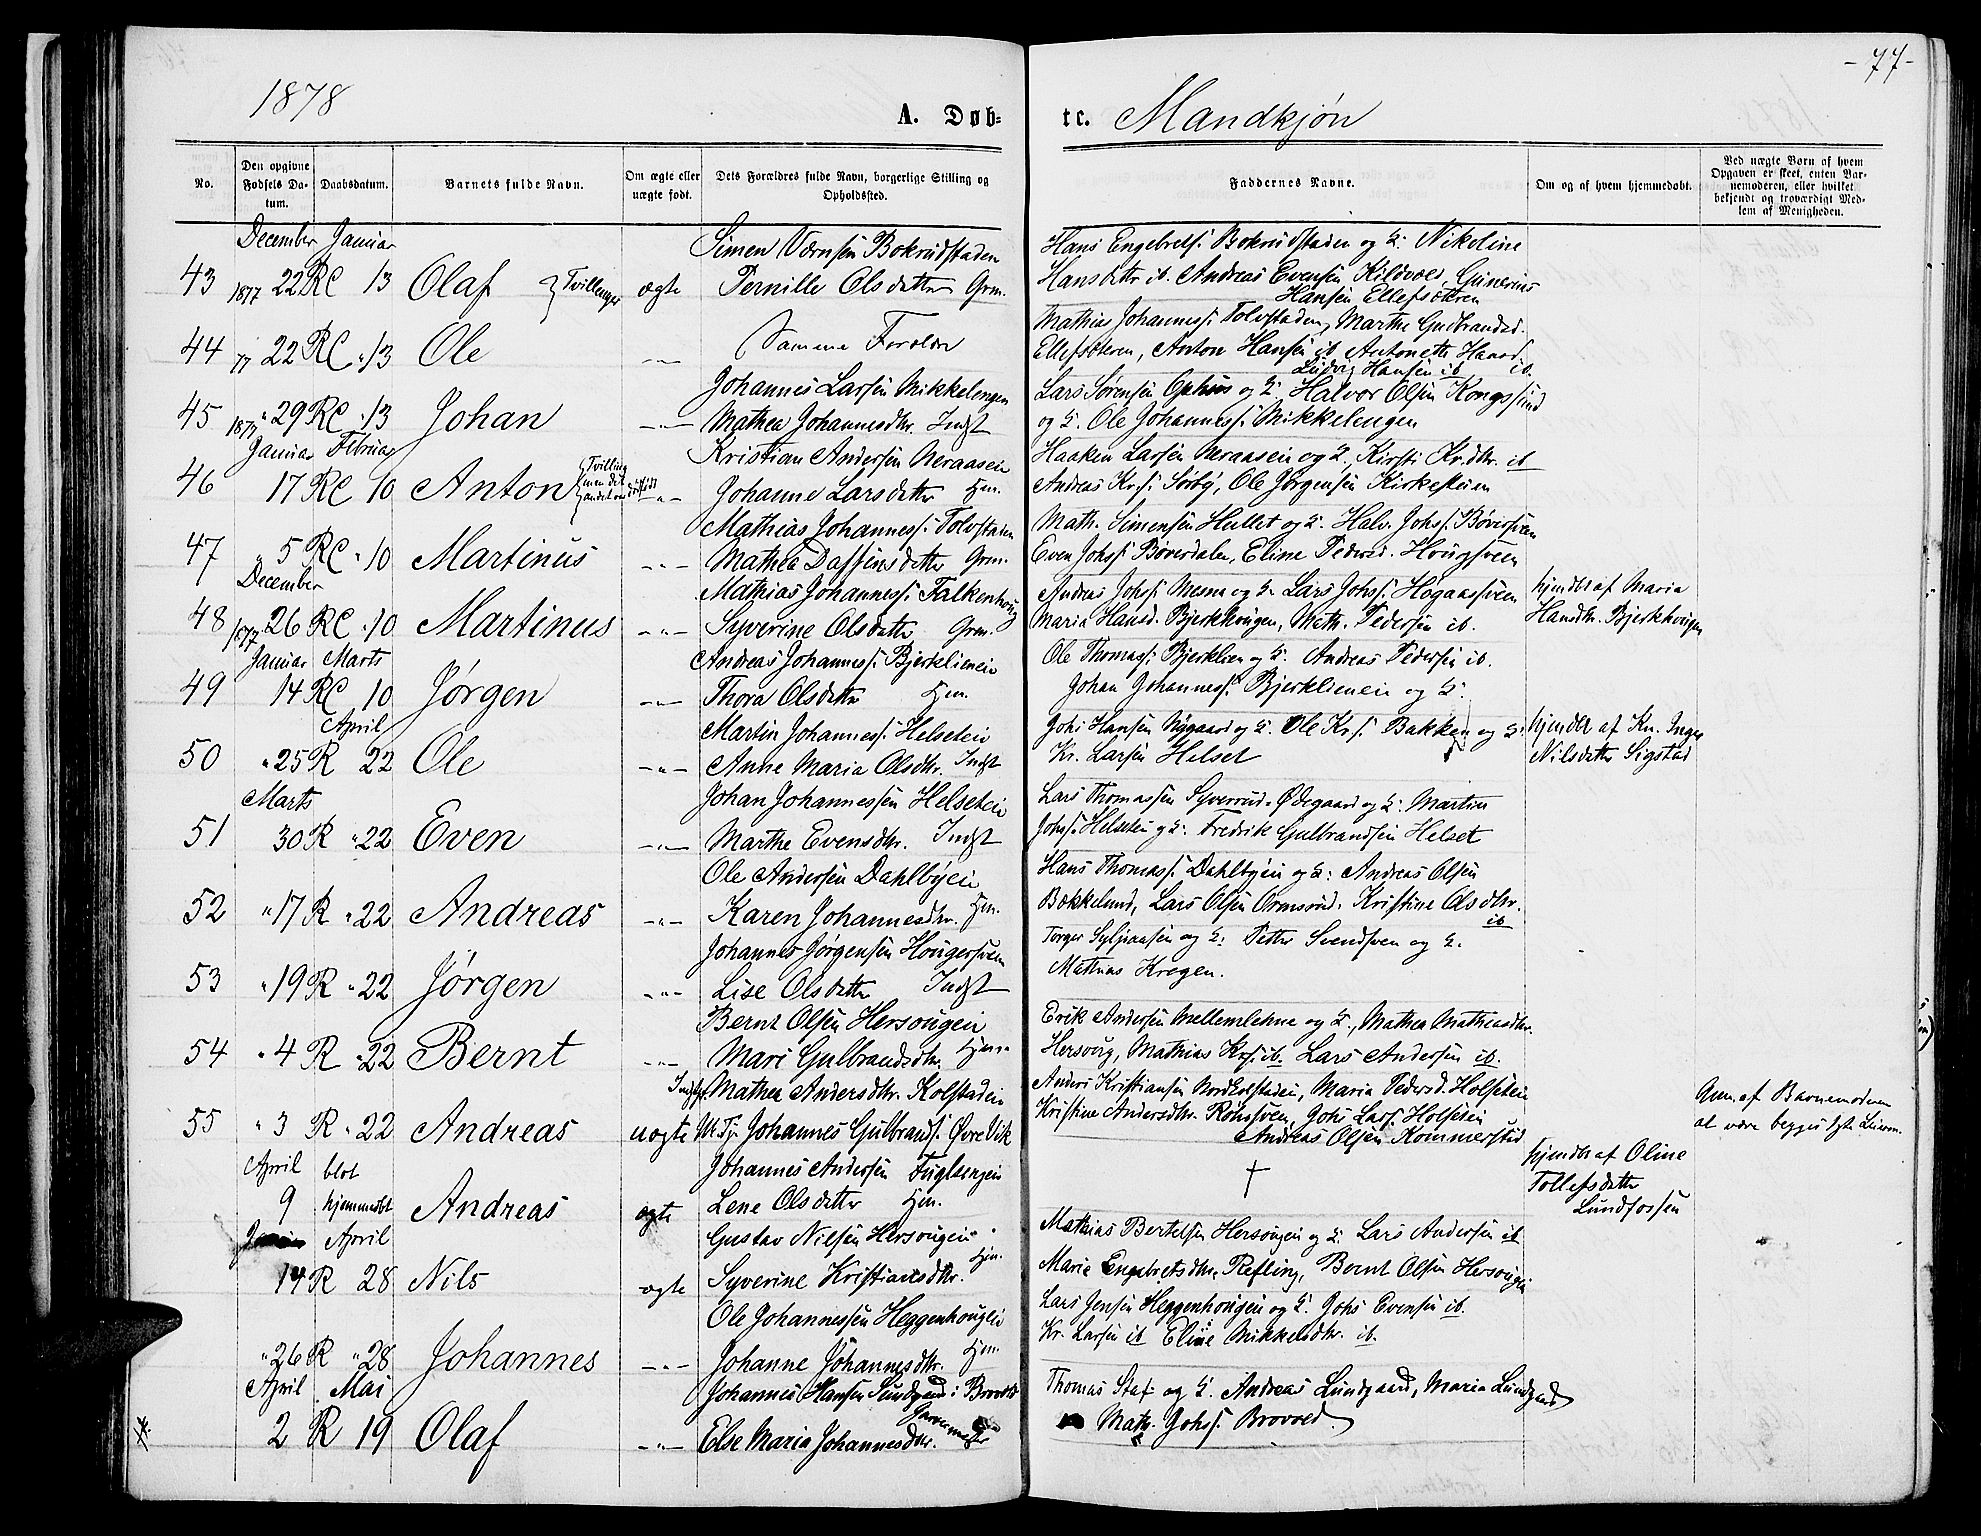 -77-
1878
A. Døb-
te. Mandkjøn
No.
Den opgivne Fødsels Da-tum.
Daabsdatum.
Barnets fulde Navn.
Om ægte eller uægte født.
Dets Forældres fulde Navn, borgerlige Stilling og Opholdssted.
Faddernes Navne.
Om og af hvem hjemmedøbt.
Ved uægte Børn af hvem Opgaven er skeet, enten Bar-nemoderen, eller hvilket bekjendt og troværdigt Med-lem af Menigheden.
December Januar Simen
Hans Engebrets. Bokrudstaden og H. Nikoline
43 1877 22 RC 13 Olaf Tvillinger ægte Pernille Olsdatter Grm.
Hansdttr ib. Andreas Evensen Kildvold, Gunerius
Hansen Ellefsæteren
44 77 22 RC " 13 Ole -"- Samme Forældre
Mathias Johanness. Tolvstaden, Marthe Gudbrandsd.
Ellefsæteren, Anton Hansen ib. Antonette Hansd. ib.
Ludvig Hansen ib
Johannes Larsen Mikkelengen
Lars Sørensen Ophus og H. Halvor Olsen Kongssund
45 1877 " 29 RC " 13 Johan -"- Mathea Johannesdtr. Indst
og H. Ole Johanness. Mikkelengen
Januar Februar Kristian Andersen Neraaseie
Haaken Larsen Neraaseie og H. Kirsti Kr.dtr. ib
46 17 RC 10 Anton Tvilling men det andet dødfødt -"- Johanne Larsdatter Hjm.
Andreas Krs. Sørby, Ole Jørgensen Kirkesteien
Mathias Johanness. Tolvstaden
Math. Simensen Hullet og H. Halv. Johs.
47 " 5 RC " 10 Martinus -"- Mathea Daffinsdatter Grm.
Even Johs. Bøverdalen, Eline Pedersd. Hougsveen
December Mathias Johanness. Falkenhoug
Andreas Johs. Mesna og H. Lars Johs. Høgaassveen
hjemdbt af Maria
48 1877 26 RC " 10 Martinus -"- Syverine Olsdatter Grm.
Maria Hansd. Bjerkhougen, Math. Pedersen ib.
Hansdtr. Bjerkhougen
Januar Marts Andreas Johanness. Bjerklieneie
Ole Thomass. Bjerklien og H. Andreas Pedersen ib.
49 14 RC 10 Jørgen -"- Thora Olsdatter Hjm.
Johan Johanness. Bjerklieneie og H.
April Martin Johanness. Helseteie
Johs Hansen Nygaard og H. Ole Krs. Bakken og H.
hjemdbt af Kn. Inger
50 " 25 R 22 Ole -"- Anne Maria Olsdtr. Indst
Kr. Larsen Helset
Nilsdatter Sigstad
Marts Johan Johannessen Helseteie
Lars Thomassen Syverud-Ødegaard og H. Martin
51 30 R " 22 Even -"- Marthe Evensdtr. Indst
Johs. Helseteie og H. Fredrik Gulbrandsen Helset
Ole Andersen Dahlbyeie
Hans Thomass. Dahlbyeie og H. Andreas Olsen
52 " 17 R " 22 Andreas -"- Karen Johannesdtr. Hjm.
Bækkelund, Lars Olsen Ormsrud. Kristine Olsdtr. ib
Johannes Jørgensen
Torger Syljuasen og H. Petter Svendsven og H.
53 " 19 R " 22 Jørgen -"- Lise Olsdatter Indst
Mathias Kregen.
Bernt Olsen Hersougeie
Erik Andersen Mellemlehne og H., Mathea Mathiasdtr.
54 " 4 R " 22 Bernt -"- Mari Gulbrandsdtr. Hjm.
Hersoug, Mathias Krs. ib. Lars Andersen ib.
Mathea Andersdtr. Kolstadeie
Anders Kristiansen Nordkolstadeie, Maria Pedersd. Holseteie
Anm. af Barnemoderen
55 " 3 R " 22 Andreas uægte U. Tj. Johannes Gulbrands. Øvre Vik
Kristine Andersdtr. Rohnsven, Johs Lars. Holseteie
Andreas Olsen Kommerstad
at være begges 1ste Leierm.
April blot Johannes Andersen Fuglsengeie
†
hjemdbt af Oline
9 hjemmedbt Andreas ægte Lene Olsdatter Hjm.
Tollefsdatter
Lundfossen
April Gustav Nilsen Hersougeie
Mathias Bertelsen Hersougeie og H. Lars Andersen ib.
14 R 28 Nils ægte Syverine Kristiansdtr. Hjm.
Marie Engebretsdtr. Refling, Bernt Olsen Hersougeie
Ole Johannessen Heggenhougeie
Lars Jensen Heggenhougeie og H. Johs Evensen ib.
" 26 R " 28 Johannes -"- Johanne Johannesdtr. Hjm.
Kr. Larsen ib Eline Mikkelsdtr. ib.
April Mai Johannes Hansen Lundgaard i Brovold
Thomas Staf og H. Andreas Lundgaard, Maria Lundgaard
2 R 19 Olaf -"- Else Maria Johannesdtr. Garvermester
Math. Johs. Brovold